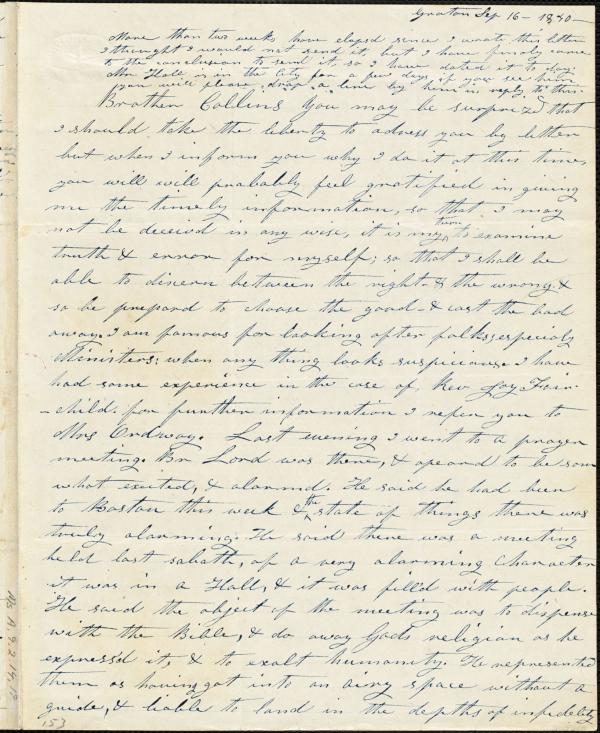 Groton Sep 16 - 1840 -
More than two weeks have elapsd since I wrote this letter
I thought I would not send it, but I have finaly come
to the conclusion to send it, so I have dated it to day.
Mr Hall is in the City for a few days, if you see him
you will please drop a line by him in reply to this.
Brother Collins You may be surprizd that
I should take the liberty to adress you by letter
but when I inform you why I do it at this time,
you will will probably feel gratified in giving
me the timely information, so that I may
not be deceivd in any wise, it is my turn to examine
truth & error for myself; so that I shall be
able to discern between the right & the wrong &
so be prepard to choose the good & cast the bad
away, I am famous for looking after folks, especialy
Ministers; when any thing looks suspicious I have
had some experience in the case of Rev Joy Fair-
-child. for further information I refer you to
Mrs Ordway. Last evening I went to a prayer
meeting. Br Lord was there, & apeard to be som
what excited, & alarmd. He said he had been
to Boston this week & the state of things there was
truly alarming. He said there was a meeting
held last sabath, of a very alarming Character
it was in a Hall, & it was filld with people.
He said the object of the meeting was to dispense
with the Bible, & do away Gods religion as he
expressd it, & to exalt humanity. He represented
them as having got into an airy space without a
guide, & liable to land in the depths of infidelity
153
Ms. A. 9. 2